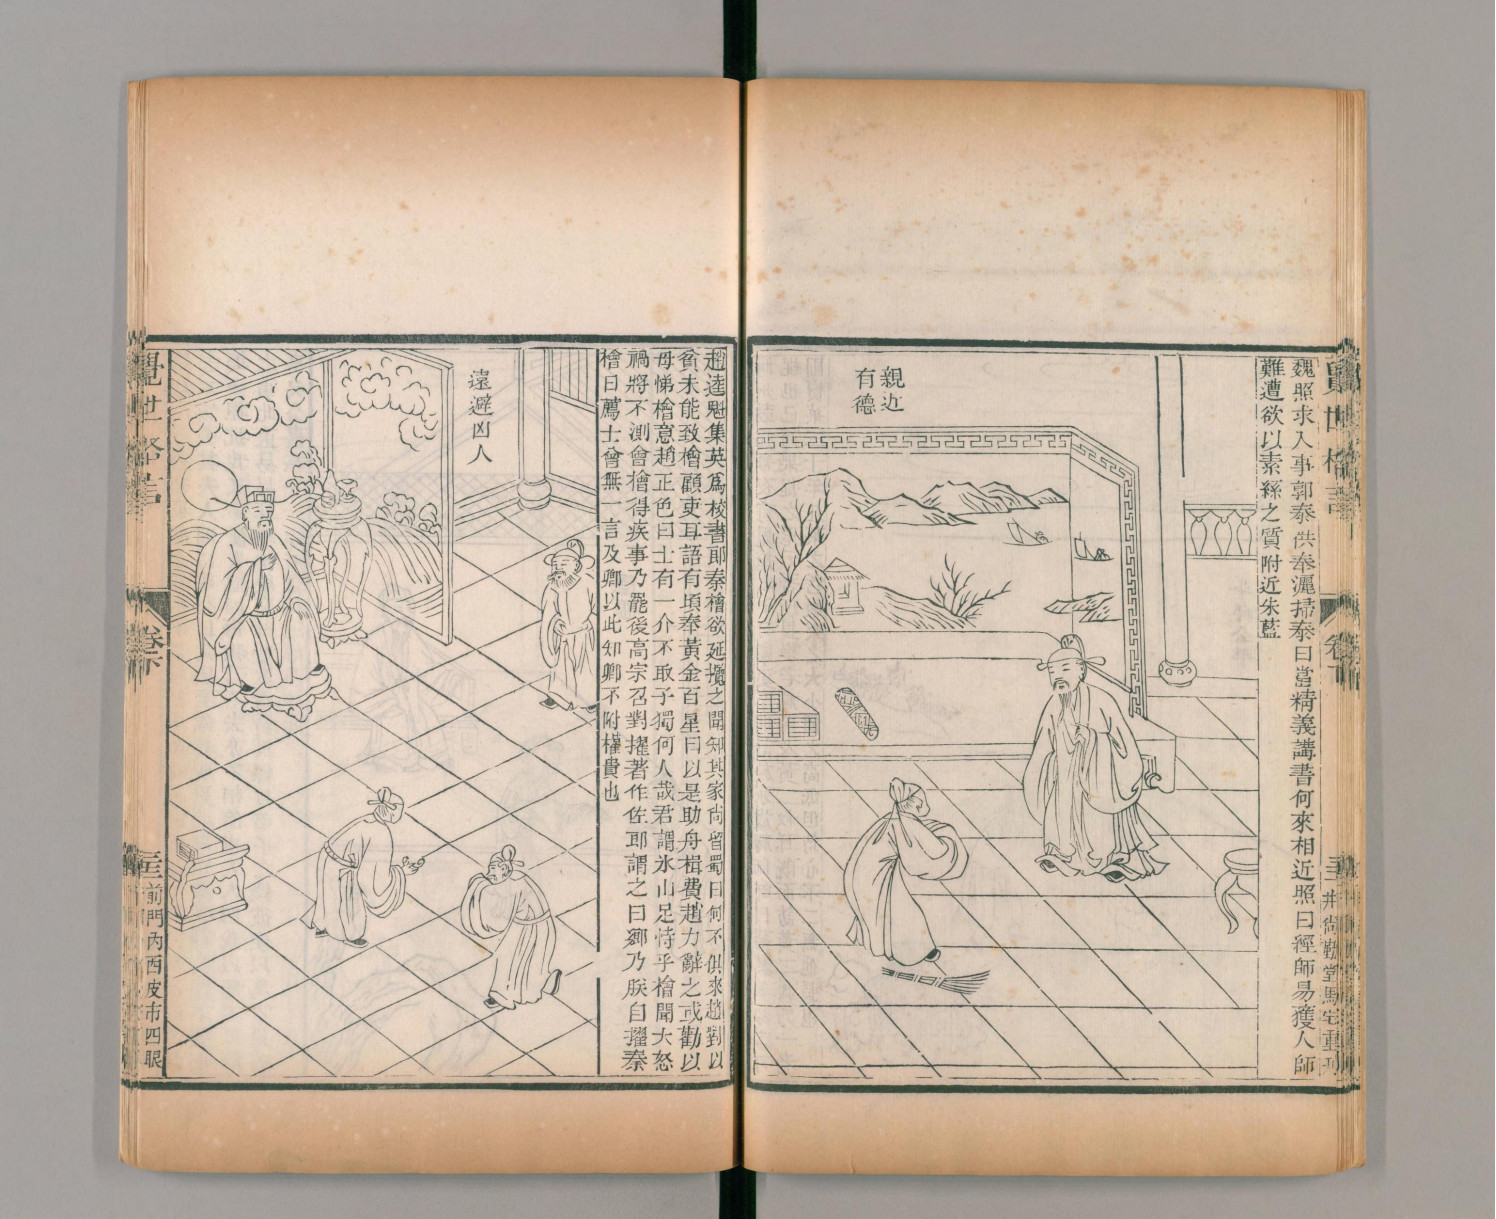 魏照求入事郭泰供奉灑掃泰曰當精義講書何來相近照曰經師易獲人師
難遭欲以素絲之質附近朱藍
親近
有德
卷下
井尚勤堂馬宅重刊
趙逵魁集英爲校書郎秦檜欲延攬之聞知其家尚留蜀曰何不俱來趙對以
貧未能致檜顧吏耳語有頃奉黃金百星曰以是助舟楫費趙力辭之或勸以
毋悌檜意趙正色曰士有一介不取予獨何人哉君謂氷山足恃乎檜聞大怒
禍將不測會檜得疾事乃罷後高宗召對擢著作佐耶謂之曰鄉乃朕自擢秦
檜曰薦士曾無一言及鄉以此知鄉不附權貴也
遠避凶人
覺世
卷下
前門內西皮市四眼